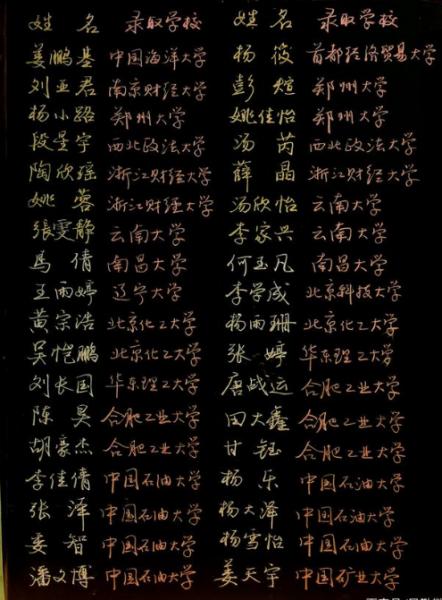 姓名 录取学校 姓名 录取学校
姜鹏基 中国海洋大学 杨筱 首都经济贸易大学
刘亚君 南京财经大学 彭煊 郑州大学
杨小路 郑州大学 姚佳怡 郑州大学
段星宇 西北政法大学 汤芮 西北政法大学
陶欣瑶 浙江财经大学 薛晶 浙江财经大学
姚蓉 浙江财经大学 汤欣怡 云南大学
張雯静 云南大学 李家兴 云南大学
馬倩 南昌大学 何玉凡 南昌大学
王雨婷 辽宁大学 李学成 北京科技大学
黄宗浩 北京化工大学 杨雨珊 北京化工大学
吴恺鹏 北京化工大学 张婷 华东理工大学
刘长国 华东理工大学 唐战运 合肥工业大学
陈昊 合肥工业大学 田大鑫 合肥工业大学
胡豪杰 合肥工业大学 甘钰 合肥工业大学
李佳倩 中国石油大学 杨乐 中国石油大学
张泽 中国石油大学 杨大泽 中国石油大学
姜智 中国石油大学 杨雪怡 中国石油大学
潘文博 中国石油大学 姜天宇 中国矿业大学